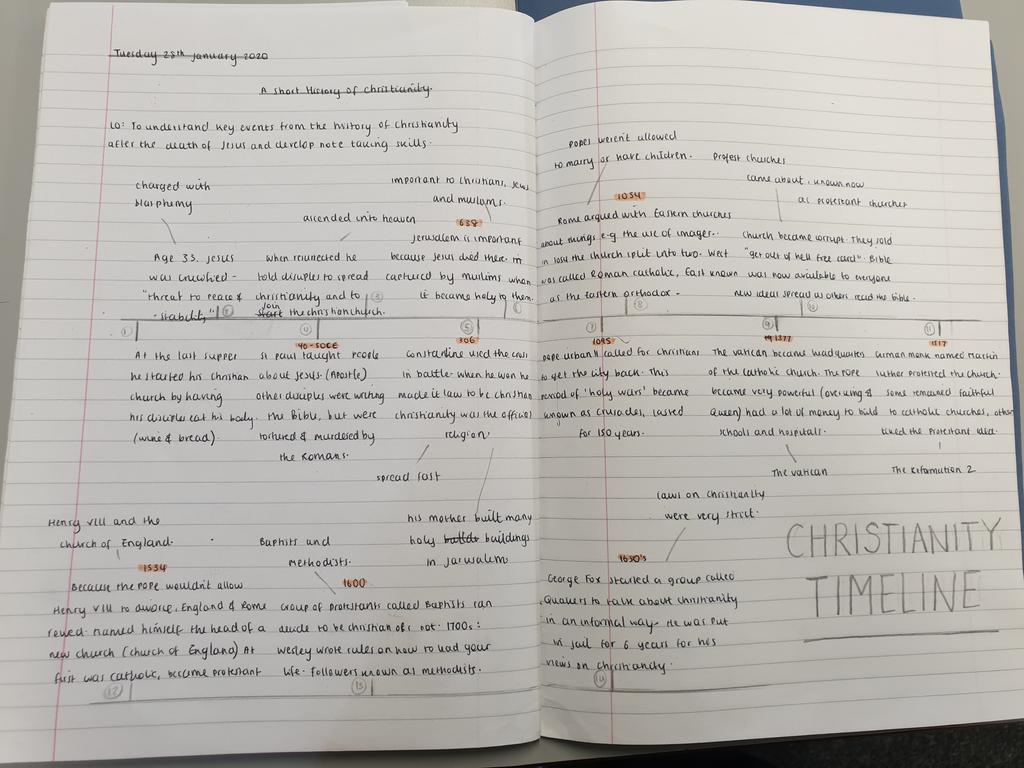 Tuesday 28th January 2020
A Short History of Christianity.
LO: To understand key events from the history of Christianity
after the death of Jesus and develop note taking skills.
charged with
blasphemy
ascended into heaven
important to Christians, Jews
and muslims.
638
Age 33. Jesus
was crucified -
"threat to peace &
stability,"
when resurrected he
told disciples to spread
christianity and to
join
start the christian church.
Jerusalem is important
because Jesus died there. It
captured by muslims when
it became holy to them.
1
2
3
4
5
6
At the last supper
he started his christian
church by having
his disciples eat his body.
(wine & bread).
40-50CE
St Paul taught people
about Jesus. (Apostle)
other disciples were writing
the Bible, but were
tortured & murdered by
the Romans.
306
Constantine used the cross
in battle. when he won he
made it law to be christian
christianity was the official
religion.
spread fast
his mother built many
holy buildings
in Jerusalem
Henry VIII and the
church of England.
1534
Because the POPE wouldn't allow
Henry VIII to divorce, England & Rome
named himself the head of a
new church (church of England) At
first was catholic, became protestant
12
Baptists and
Methodists.
1600
Group of Protestants called Baptists ran
decide to be christian or not. 1700s:
Wesley wrote rules on how to lead your
life. Followers known as methodists.
13
POPES weren't allowed
to marry or have children.
1054
Rome argued with Eastern churches
about things e.g the use of images.
in 1054 the church split into two. West
was called Roman catholic, East known
as the Eastern orthodox.
Protest churches
came about, known now
as protestant churches
church became corrupt. They sold
"get out of hell free card". Bible
was now available to everyone
new ideas spread as others read the Bible.
7
8
9
10
11
1095
POPE Urban II called for christians
to get the city back. This
period of 'holy wars' became
known as crusades, lasted
for 150 years.
1377
The vatican became headquaters
of the catholic church. The POPE
became very powerful (overusing &
Queen) had a lot of money to build
schools and hospitals.
The vatican
1517
German monk named Martin
Luther protested the church.
some remained faithful
to catholic churches, other
liked the Protestant idea.
The Reformation 2
laws on christianity
were very strict.
1650's
George Fox started a group called
Quakers to talk about christianity
in an informal way. He was put
in jail for 6 years for his
views on christianity.
14
CHRISTIANITY
TIMELINE